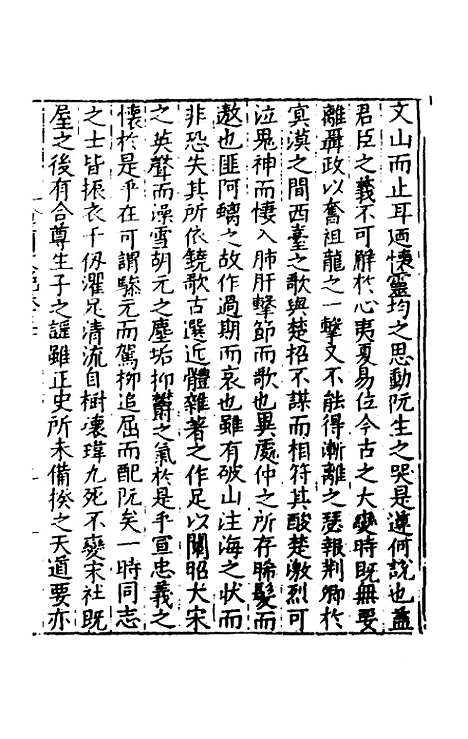 文山而止耳迺懷靈均之思動阮生之哭是遵何說也蓋
君臣之義不可解於心夷夏易位今古之大變時既無要
離聶政以奮祖龍之一擊又不能得漸離之瑟報荆卿於
寞漠之間西臺之歌與楚招不謀而相符其酸楚激烈可
泣鬼神而悽入肺肝擊節而歌也異處仲之所存晞髮而
遨也匪阿𤣥之故作過期而哀也雖有破山注海之狀而
非恐失其所依鐃歌古選近體雜著之作足以闡昭大宋
之英聲而澡雪胡元之塵垢抑鬱之氣於是乎宣忠義之
懷於是乎在可謂驂元而駕柳追屈而配阮矣一時同志
之士皆振衣千仭濯足清流自樹懷瑋九死不變宋社既
屋之後有合尊生子之謡雖正史所未備揆之天道要亦